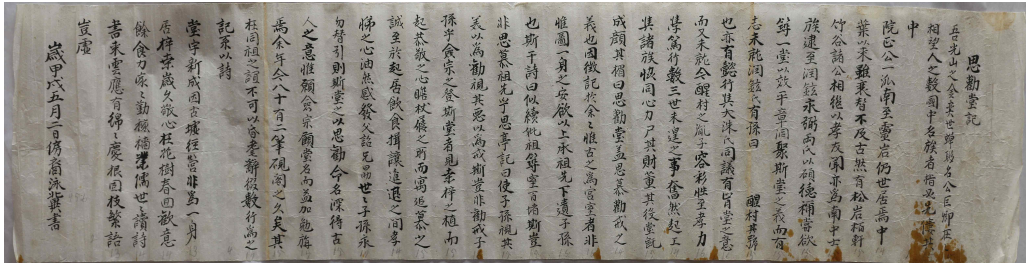 思勸堂記
先山之金系世聯翩名公巨卿
相望入之國中名族者指必先
中
院正公一派南至靈岩仍世居焉中
葉以來雖替不及古然有松岩栢軒
竹谷諸公相繼以孝友聞亦爲南中士
族逮至潤鉉弼兩氏以碩德
一堂以放平章洞聚斯堂之義而有
志未就潤鉉氏有孫曰 醒村再錫
也亦有懿行與大洙氏同議堂之意
而又未就今醒村之胤子容彩性至孝力
學篤行數三世未遑之事奮然起工
其諸族恢同心力尸其財董其役堂訖
成顔其楣曰思勸堂盖思慕勸戒之
義也因徵記於余余惟古之爲宮室者非
惟圖一身之安欲以上承祖先下遺子孫
也斯干詩曰似續妣祖築室百堵斯豈
非思慕祖先乎思亭記曰使子孫視其
美以爲勸視其惡以爲戒斯豈非勸戒子
孫乎僉宗之登斯堂者見桑梓之植而
起恭敬之心瞻杖屨之所而寓追慕之
誠至於起居飮食揖讓進退之間孝
悌之心油然感發父詔兄勖世世子孫永
勿替引則斯堂之以思勸命名深得古
人之意惟願僉宗顧堂名而益加勉旃
焉余年今八十有二筆硯閣之久矣其
在同祖之誼不可以耄辭綴數行爲之
記系以詩
堂宇新成因古墟經營非爲一身
居梓桑歲久敬心在花樹春回歡意
餘食力家家勤穮業儒世世讀詩
書來雲應有綿綿慶根固枝繁詒
豈虛
歲甲戌五月二日傍裔洙華書